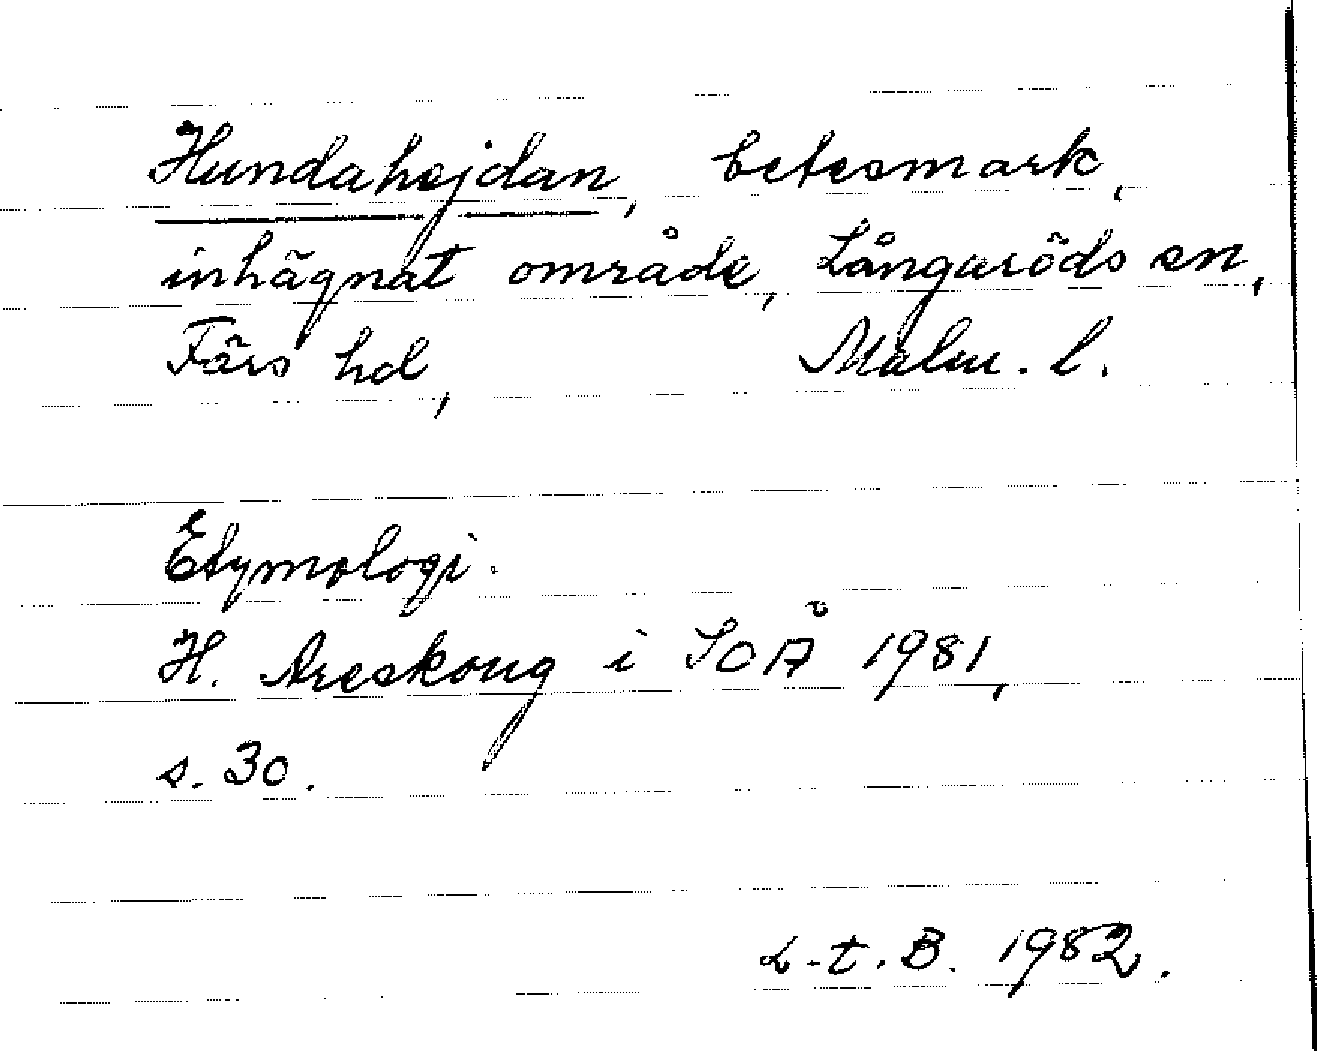 Hundahejdan, betesmark,
inhägnat område, Långaröds sn,
Färs hd, Malm. l.
Etymologi.
H. Areskoug i SOÅ 1981,
s. 30.
L-t. B. 1982.